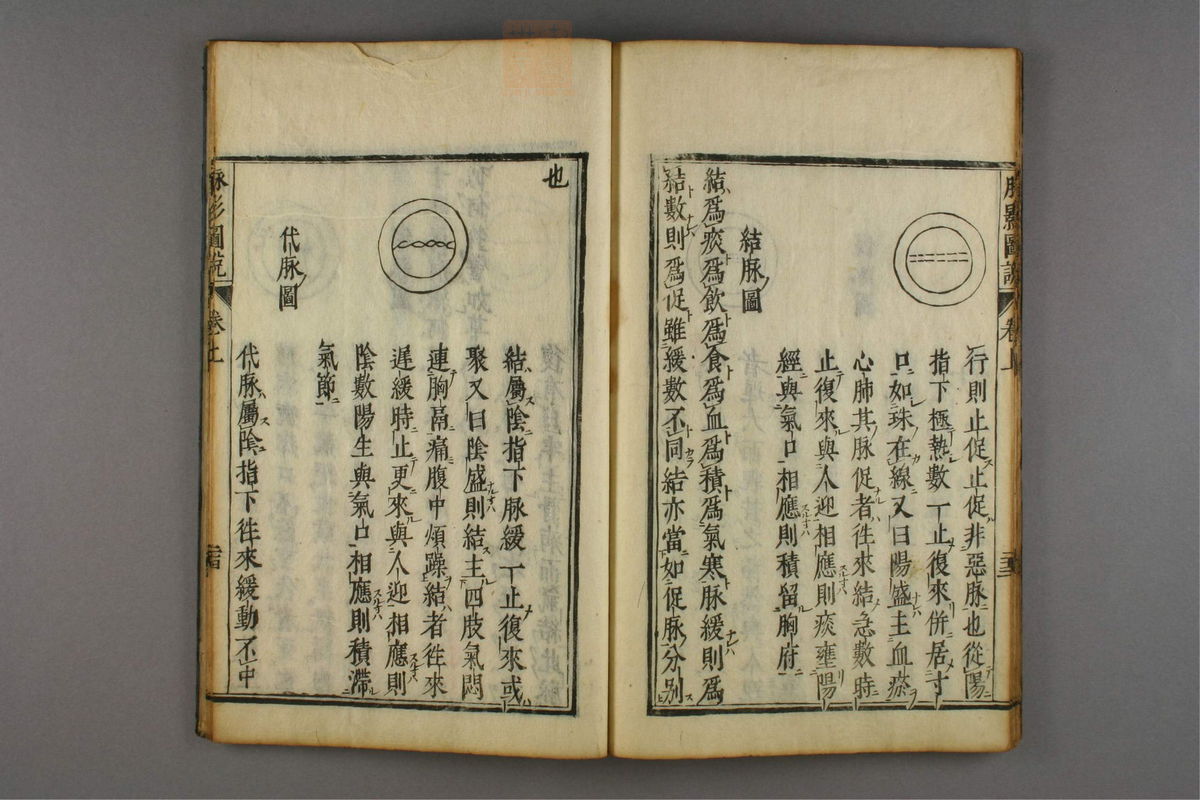 脉影圖說 卷上
行則止促止促非惡脉也從陽
指下極熱數一止復來併居寸
口如珠在線又曰陽盛主血瘀
心肺其脉促者徃來結急數時
止復來與人迎相應則痰壅陽
經與氣口相應則積留胸府
結脉圖
結爲痰爲飲爲食爲血爲積爲氣寒脉緩則爲
結數則爲促雖緩數不同結亦當如促脉分别
也
結屬陰指下脉緩一止復來或
聚又曰陰盛則結主四肢氣悶
連胸膈痛腹中煩躁結者徃來
遲緩時止更來與人迎相應則
陰數陽生與氣口相應則積滯
氣節
代脉圖
代脉屬陰指下徃來緩動不中
脉影圖說 卷上